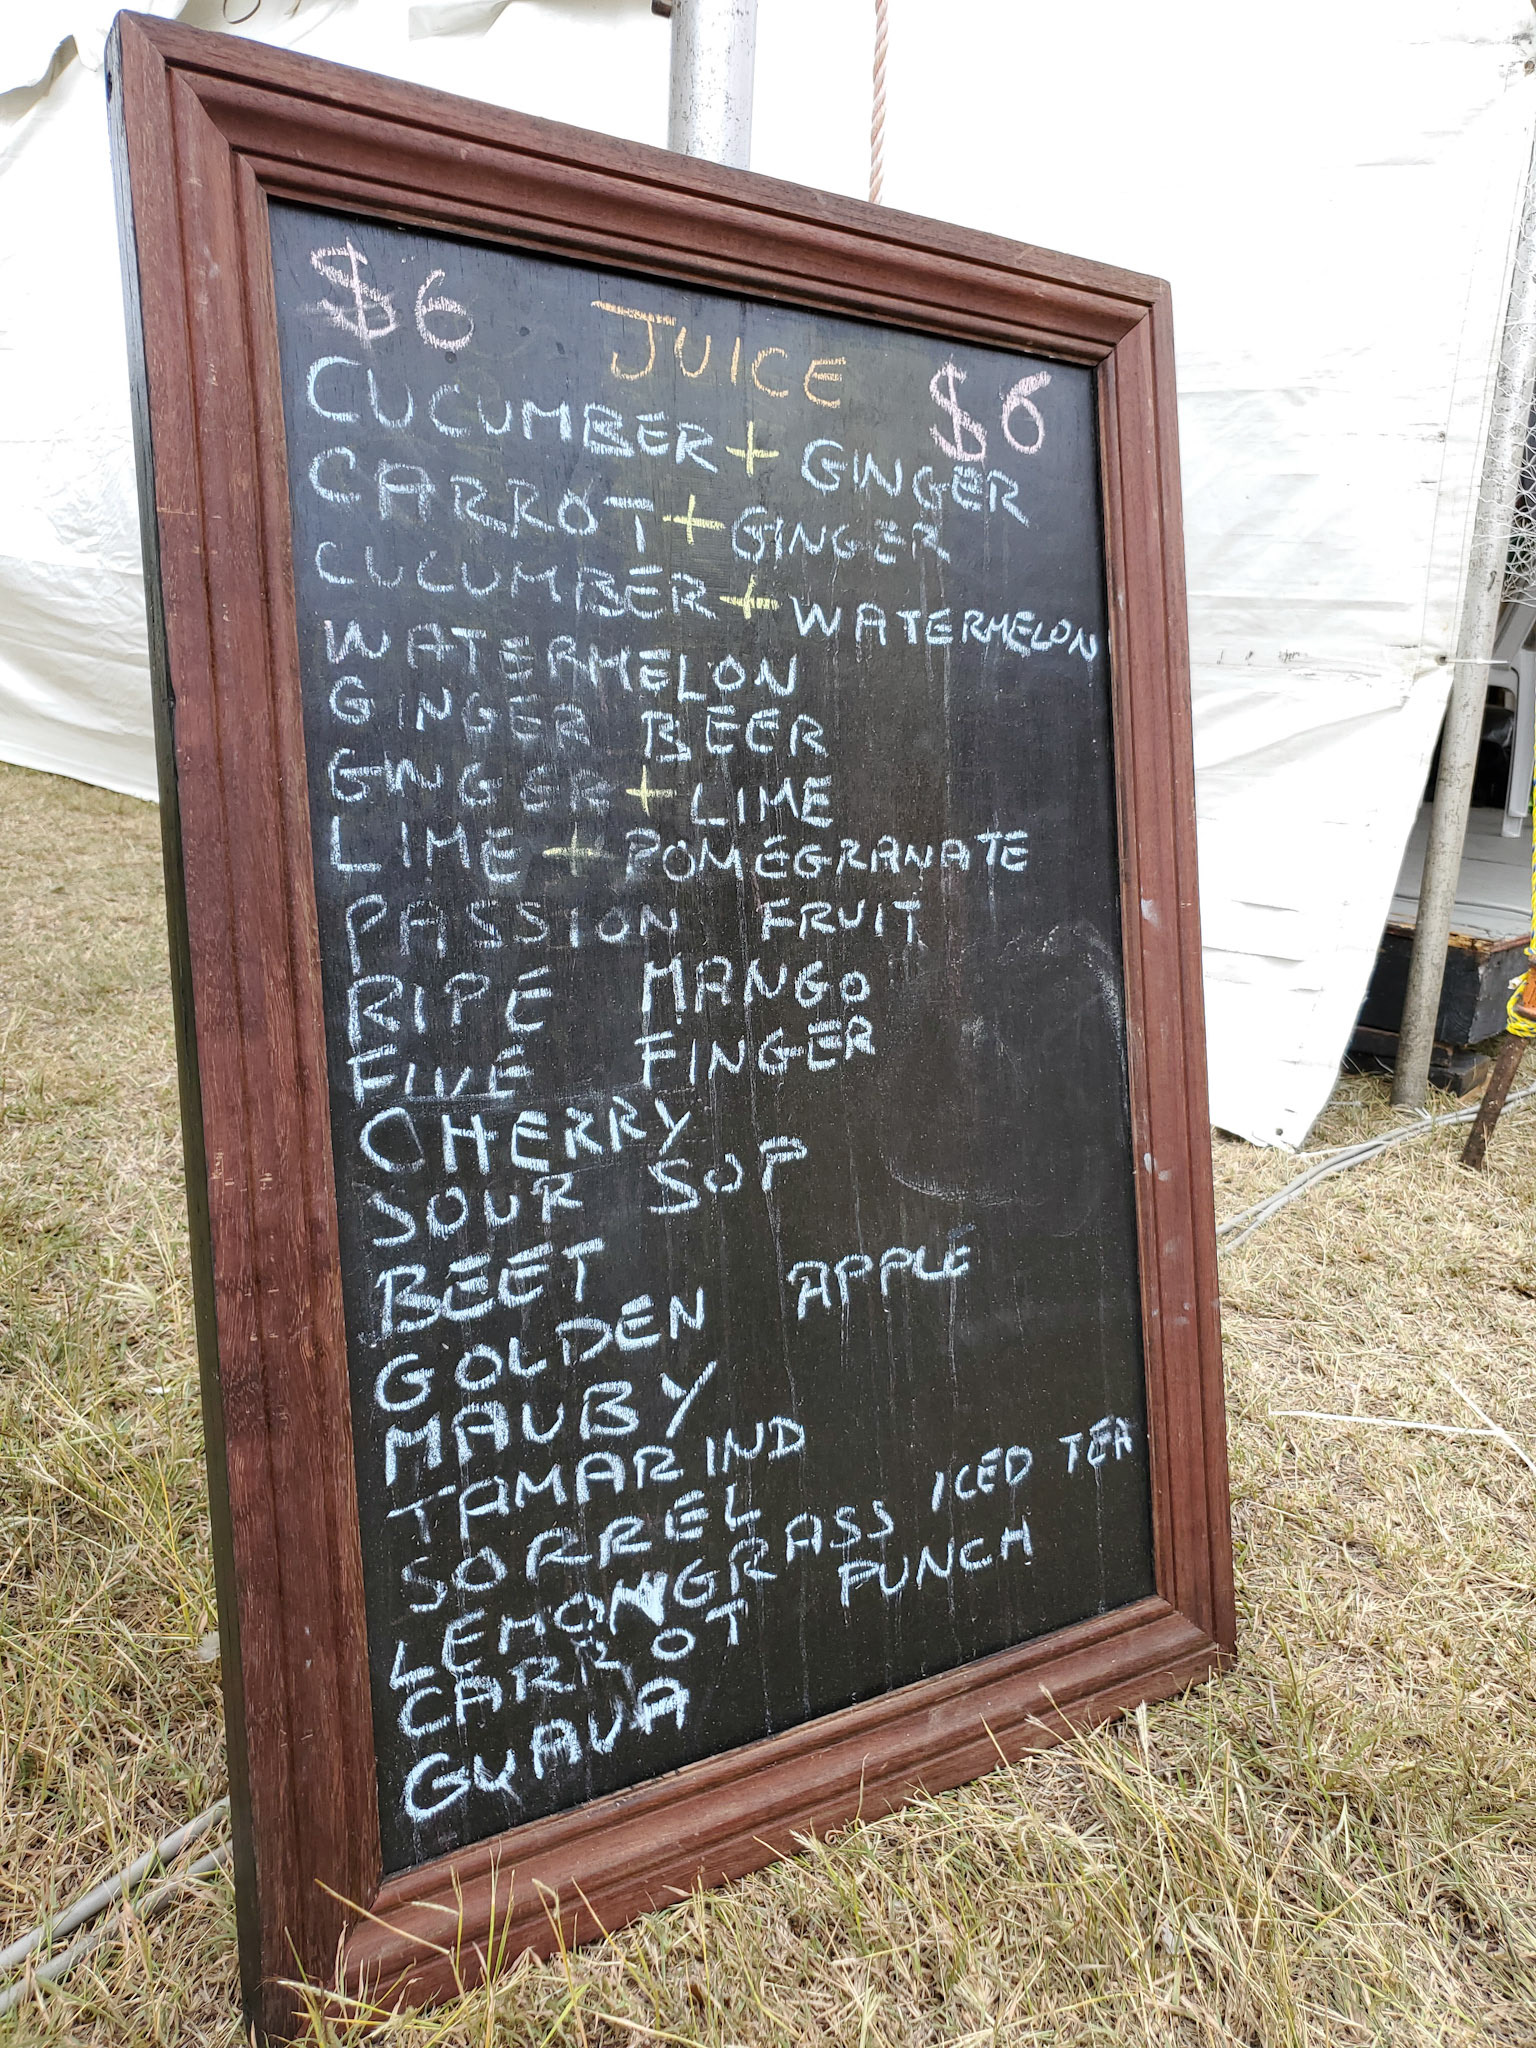 $6 JUICE $6
CUCUMBER + GINGER
CARROT + GINGER
CUCUMBER + WATERMELON
WATERMELON
GINGER BEER
GINGER + LIME
LIME + POMEGRANATE
PASSION FRUIT
RIPE MANGO
FIVE FINGER
CHERRY
SOUR SOP
BEET
GOLDEN APPLE
MAUBY
TAMARIND
SORREL
LEMONGRASS ICED TEA
CARROT PUNCH
GUAVA